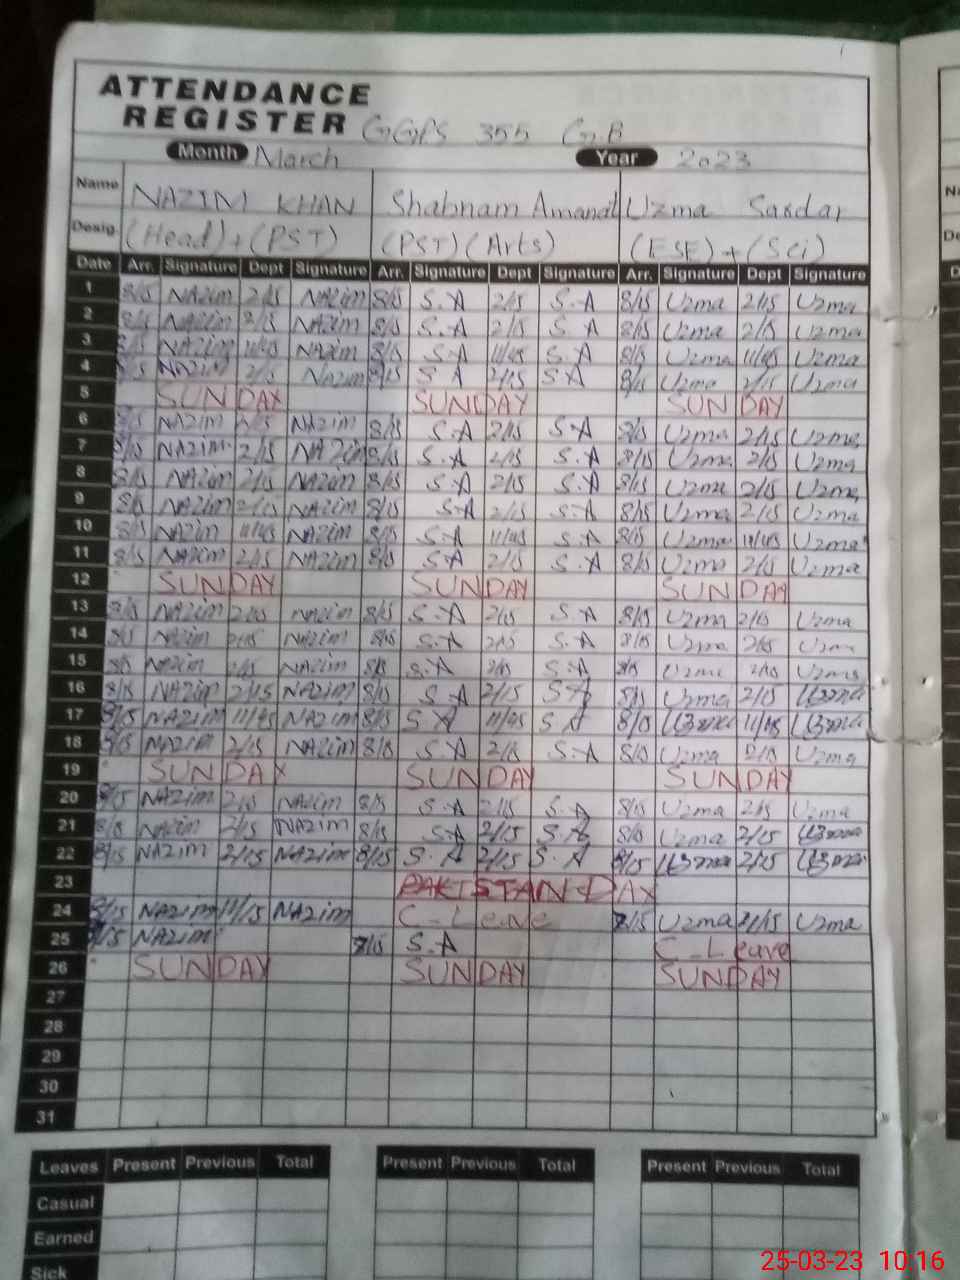 ATTENDANCE
REGISTER GGPS 355 GB
Month March Year 2023
Name NAZIM KHAN Shabnam Amanat Uzma Sardar
Desig. (Head)+(PST) (PST)(Arts) (ESE)+(Sci)
Date Arr. Signature Dept Signature Arr. Signature Dept Signature Arr. Signature Dept Signature
1 8/15 NAZim 2/15 NAZim 8/15 S.A 2/15 S.A 8/15 Uzma 2/15 Uzma
2 8/15 NAZim 2/15 NAZim 8/15 S.A 2/15 S.A 8/15 Uzma 2/15 Uzma
3 8/15 NAZim 11/45 NAZim 8/15 S.A 11/45 S.A 8/15 Uzma 11/45 Uzma
4 8/15 NAZim 2/15 NAZim 8/15 S.A 2/15 S.A 8/15 Uzma 2/15 Uzma
5 SUNDAY SUNDAY SUNDAY
6 8/15 NAZim 2/15 NAZim 8/15 S.A 2/15 S.A 8/15 Uzma 2/15 Uzma
7 8/15 NAZim 2/15 NAZim 8/15 S.A 2/15 S.A 8/15 Uzma 2/15 Uzma
8 8/15 NAZim 2/15 NAZim 8/15 S.A 2/15 S.A 8/15 Uzma 2/15 Uzma
9 8/15 NAZim 2/15 NAZim 8/15 S.A 2/15 S.A 8/15 Uzma 2/15 Uzma
10 8/15 NAZim 11/45 NAZim 8/15 S.A 11/45 S.A 8/15 Uzma 11/45 Uzma
11 8/15 NAZim 2/15 NAZim 8/15 S.A 2/15 S.A 8/15 Uzma 2/15 Uzma
12 SUNDAY SUNDAY SUNDAY
13 8/15 NAZim 2/15 NAZim 8/15 S.A 2/15 S.A 8/15 Uzma 2/15 Uzma
14 8/15 NAZim 2/15 NAZim 8/15 S.A 2/15 S.A 8/15 Uzma 2/15 Uzma
15 8/15 NAZim 2/15 NAZim 8/15 S.A 2/15 S.A 8/15 Uzma 2/15 Uzma
16 8/15 NAZim 2/15 NAZim 8/15 S.A 2/15 S.A 8/15 Uzma 2/15 Uzma
17 8/15 NAZim 11/45 NAZim 8/15 S.A 11/45 S.A 8/15 Uzma 11/45 Uzma
18 8/15 NAZim 2/15 NAZim 8/15 S.A 2/15 S.A 8/15 Uzma 2/15 Uzma
19 SUNDAY SUNDAY SUNDAY
20 8/15 NAZim 2/15 NAZim 8/15 S.A 2/15 S.A 8/15 Uzma 2/15 Uzma
21 8/15 NAZim 2/15 NAZim 8/15 S.A 2/15 S.A 8/15 Uzma 2/15 Uzma
22 8/15 NAZim 2/15 NAZim 8/15 S.A 2/15 S.A 8/15 Uzma 2/15 Uzma
23 PAKISTAN DAY
24 8/15 NAZim NAZim C-Leave Uzma Uzma
25 NAZim S.A C-Leave
26 SUNDAY SUNDAY SUNDAY
27
28
29
30
31
Leaves Present Previous Total Present Previous Total Present Previous Total
Casual
Earned
Sick
25-03-23 10:16